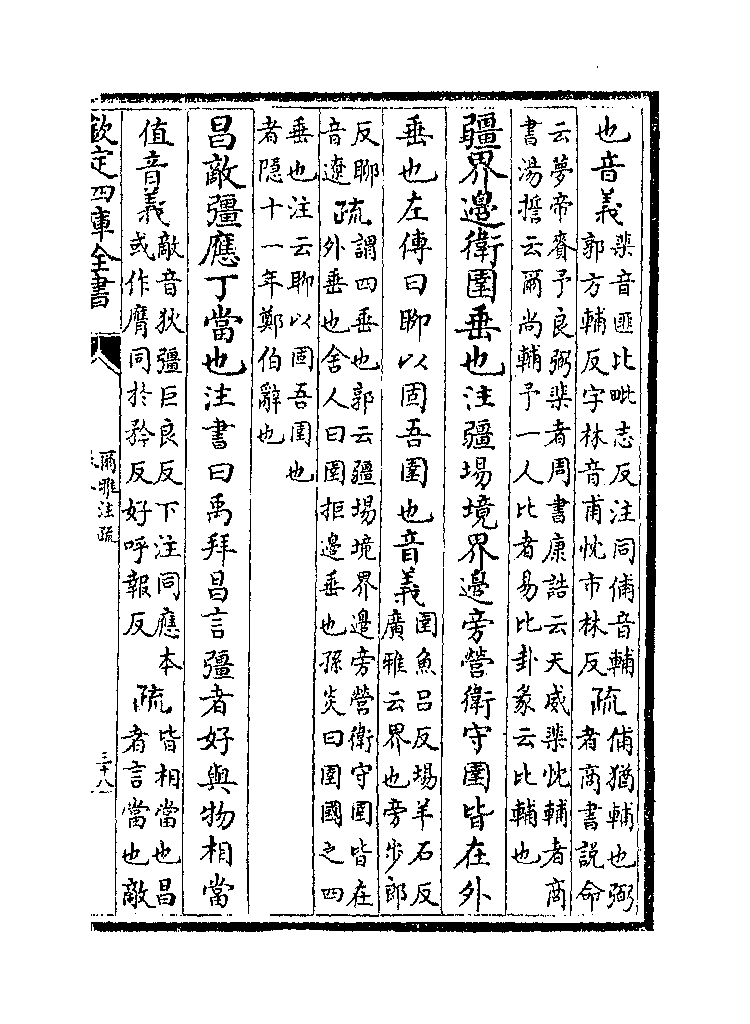 也音義棐音匪比毗志反注同俌音輔郭方輔反字林音甫忱市林反疏俌猶輔也弼者商書說命
云夢帝賚予良弼棐者周書康誥云天威棐忱輔者商
書湯誓云爾尚輔予一人比者易比卦彖云比輔也
疆界邊衛圉垂也注疆場境界邊旁營衛守圉皆在外
垂也左傳曰聊以固吾圉也音義圉魚呂反場羊石反廣雅云界也旁步郎
反聊音遼疏謂四垂也郭云疆場境界邊旁營衛守圉皆在外垂也舍人曰圉拒邊垂也孫炎曰圉國之四
垂也注云聊以固吾圉也
者隱十一年鄭伯辭也
昌敵彊應丁當也注書曰禹拜昌言彊者好與物相當
值音義敵音狄彊巨良反下注同應本或作膺同於矜反好呼報反疏皆相當也昌者言當也敵
欽定四庫全書
爾雅注疏
三十八